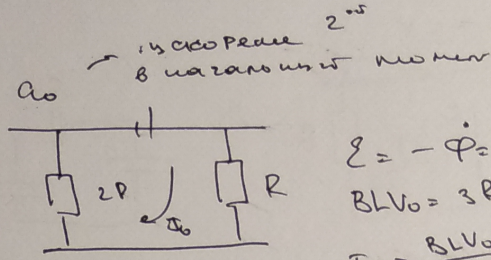 ускорение 2ой
в начальный момен
a₀
2R
I₀
R
ℰ = - Φ̇ =
BLV₀ = 3R
BLV₀